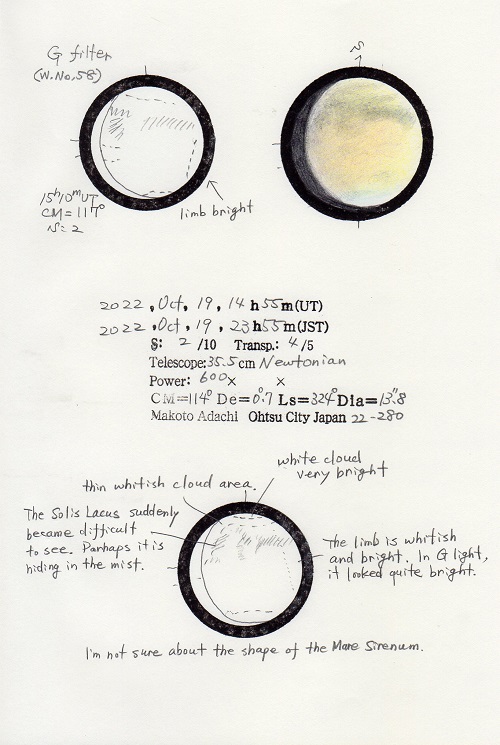 G filter
(W.No.58)
S
15h10mUT
CM=117°
S=2
limb bright
2022, Oct, 19, 14h55m(UT)
2022, Oct, 19, 23h55m(JST)
S: 2/10 Transp.: 4/5
Telescope:35.5cm Newtonian
Power: 600× ×
CM=114° De=0°.7 Ls=324° Dia=13".8
Makoto Adachi Ohtsu City Japan 22-280
white cloud
very bright
thin whitish cloud area.
The Solis Lacus suddenly
became difficult
to see. Parhaps it is
hiding in the mist.
The limb is whitish
and bright. In G light,
it looked quite bright.
I'm not sure about the shape of the Mare Sirenum.